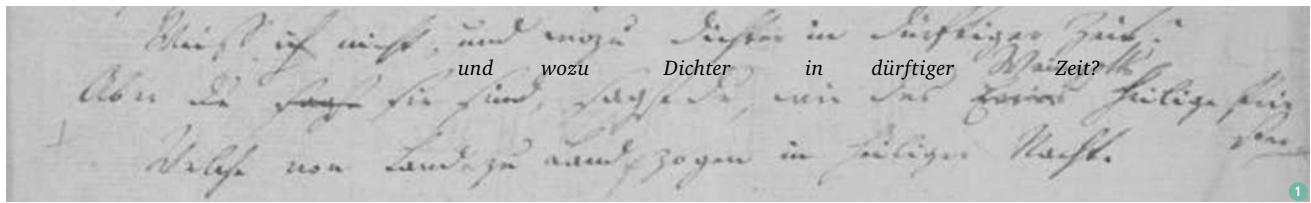 Weiß ich nicht, und wozu Dichter in dürftiger Zeit?
und wozu Dichter in dürftiger Zeit?
Aber du sie sind, sagst du, wie des heilige
Welche von Lande zu Land zogen in heiliger Nacht.
1